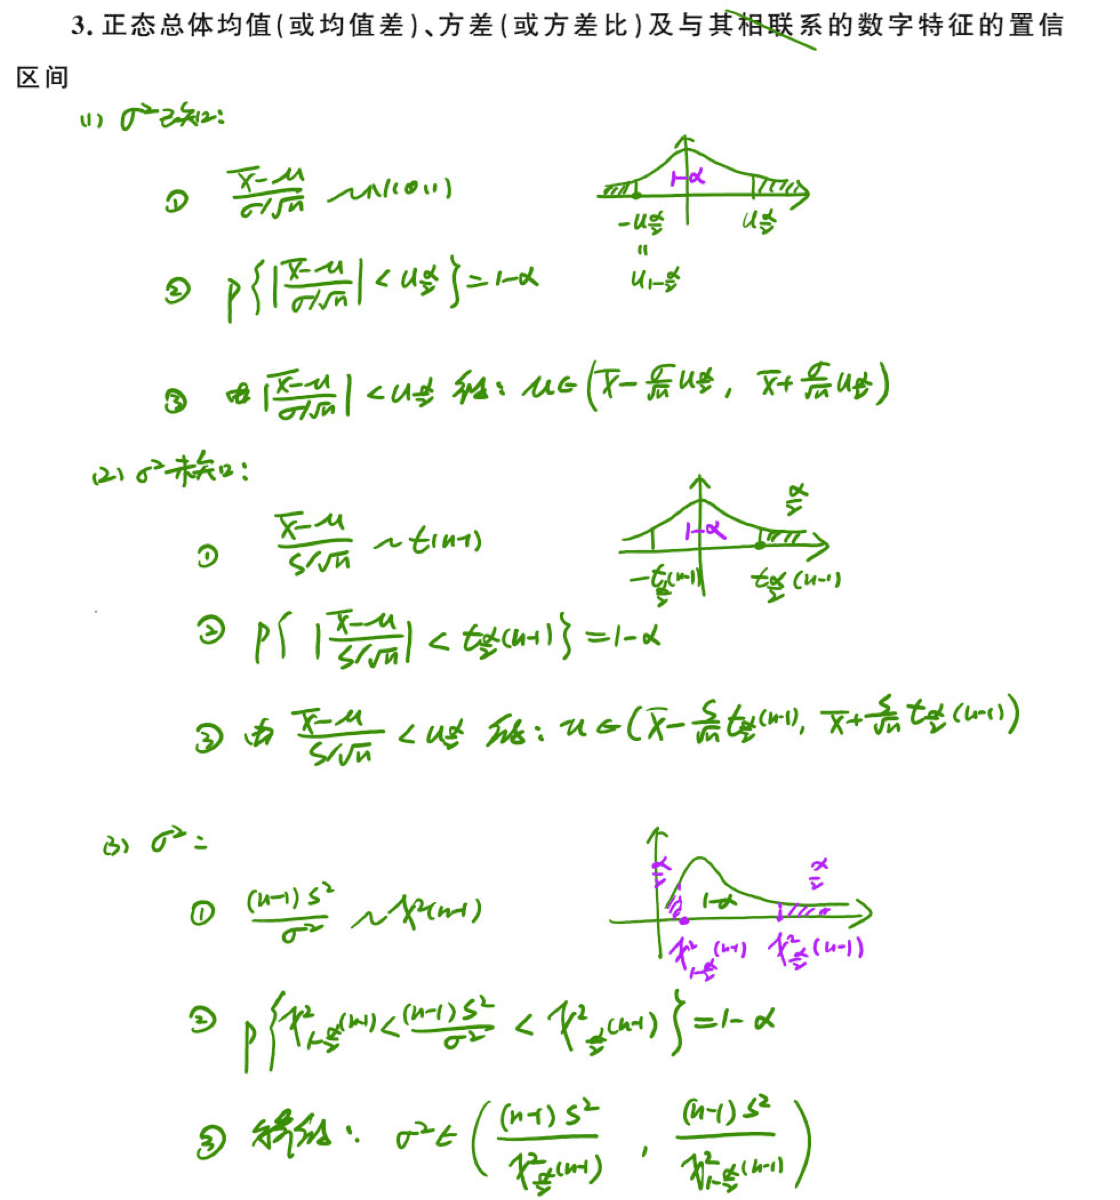 3. 正态总体均值(或均值差)、方差(或方差比)及与其相联系的数字特征的置信
区间
(1) σ²已知:
① (X̄-μ)/(σ/√n) ~N(0,1)
1-α
-u_{α/2} u_{α/2}
=
u_{1-α/2}
② P{|(X̄-μ)/(σ/√n)| < u_{α/2}}=1-α
③ 由|(X̄-μ)/(σ/√n)| < u_{α/2} 解: μ∈(X̄-σ/√n u_{α/2}, X̄+σ/√n u_{α/2})
(2) σ²未知:
① (X̄-μ)/(S/√n) ~t(n-1)
1-α α/2
-t_{α/2}(n-1) t_{α/2}(n-1)
② P{|(X̄-μ)/(S/√n)| < t_{α/2}(n-1)}=1-α
③ 由 (X̄-μ)/(S/√n) < u_{α/2} : μ∈(X̄-S/√n t_{α/2}(n-1), X̄+S/√n t_{α/2}(n-1))
(3) σ²:
① (n-1)S²/σ² ~χ²(n-1)
α/2 1-α α/2
χ²_{1-α/2}(n-1) χ²_{α/2}(n-1)
② P{χ²_{1-α/2}(n-1)<(n-1)S²/σ² < χ²_{α/2}(n-1)}=1-α
③ : σ²∈((n-1)S²/χ²_{α/2}(n-1), (n-1)S²/χ²_{1-α/2}(n-1))